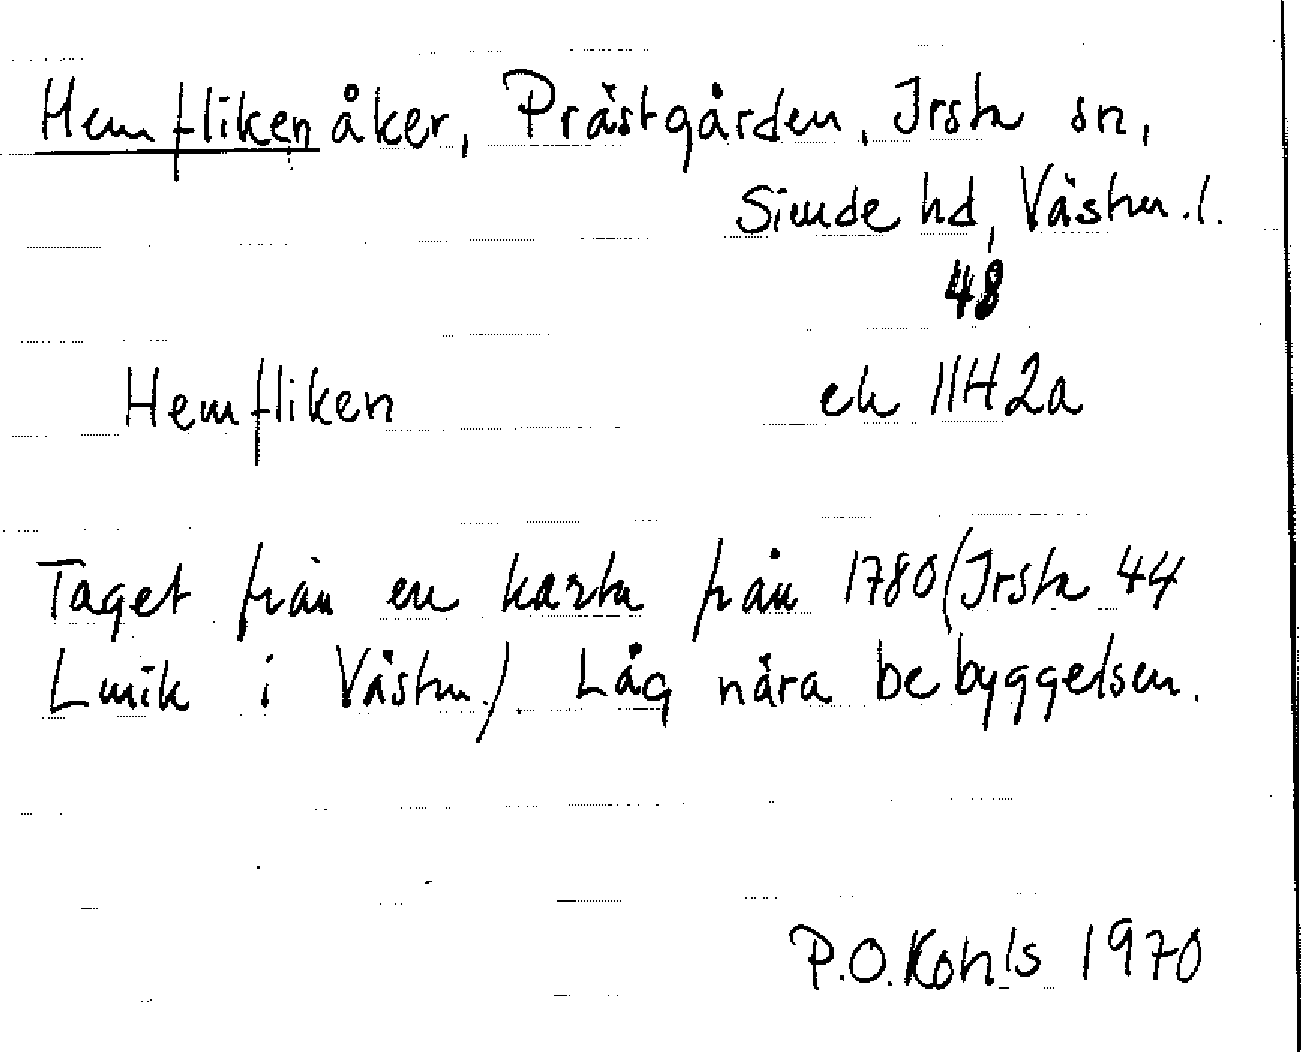 Hemfliken åker, Prästgården, Irsta sn,
Siende hd, Västm.l.
48
Hemfliken ek 11H2a
Taget från en karta från 1780 (Irsta 44
Lmik i Västm.). Låg nära bebyggelsen.
P.O. Kohls 1970